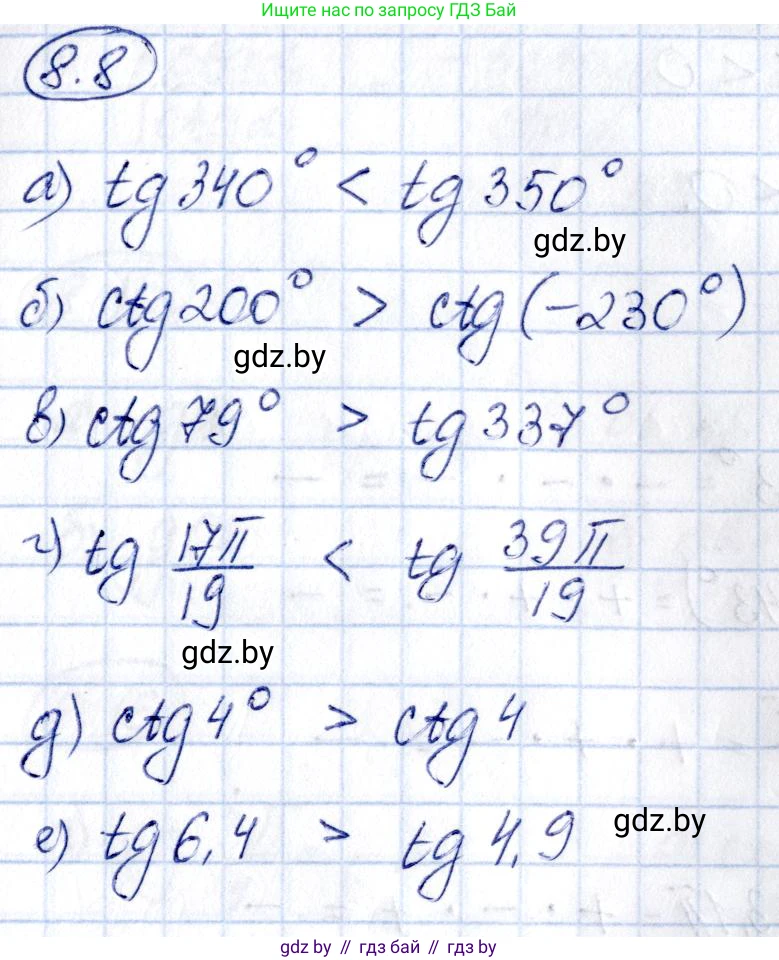 Ищите нас по запросу ГДЗ Бай
8.8
а) tg 340° < tg 350°
gdz.by
б) ctg 200° > ctg (-230°)
gdz.by
в) ctg 79° > tg 337°
г) tg 17π/19 < tg 39π/19
gdz.by
д) ctg 4° > ctg 4
е) tg 6,4 > tg 4,9
gdz.by
gdz by // гдз бай // гдз by